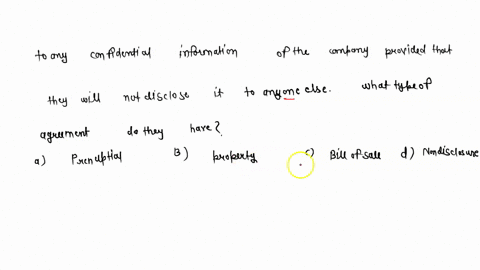 to any confidential information of the company provided that
they will not disclose it to anyone else. what type of
agreement do they have?
a) Prenuptial B) property c) Bill of sale d) Nondisclosure